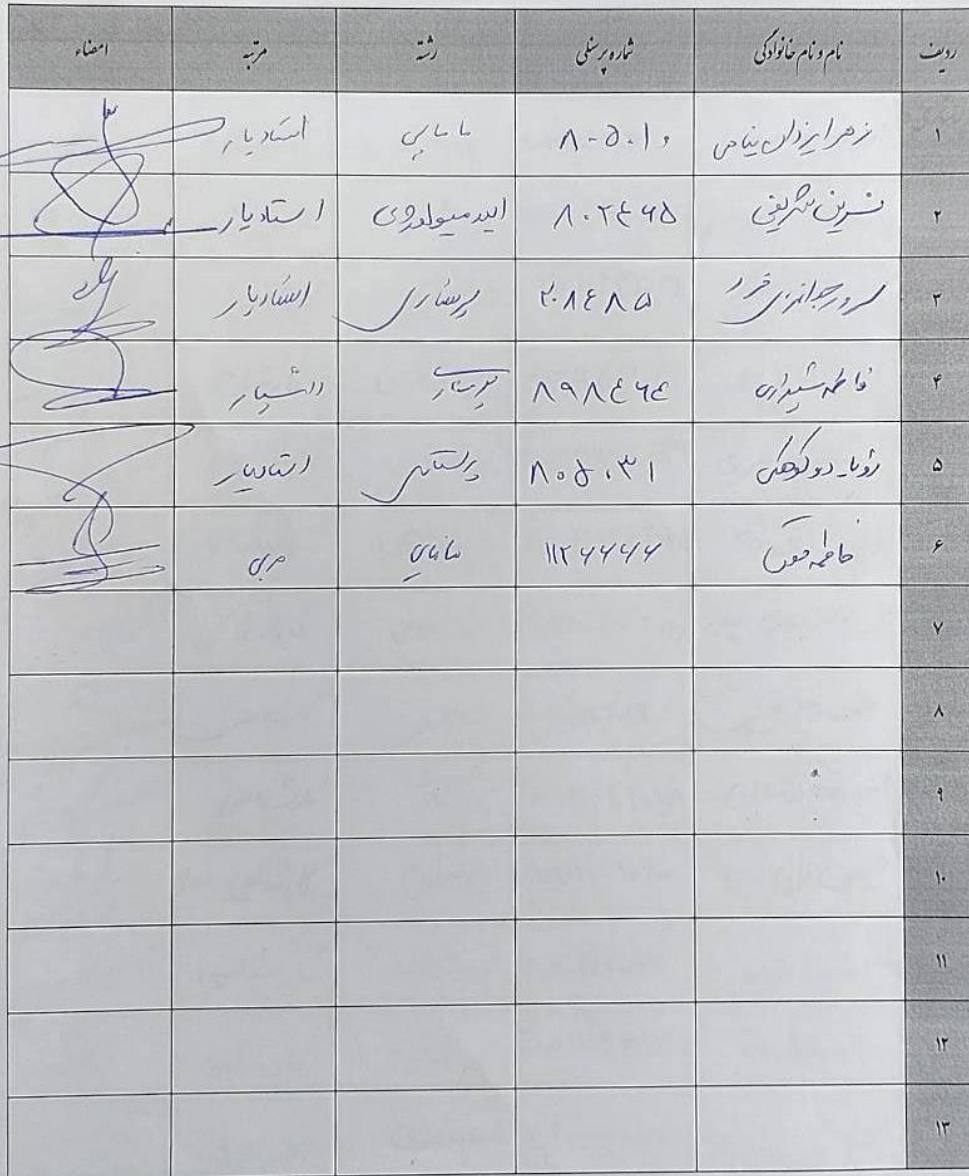 ردیف نام و نام خانوادگی شماره پرسنلی رشته مرتبه امضاء
۱ زهرا ایزدان پناهی ۸۰۵۰۱۰ مامایی استادیار
۲ نسرین شریفی ۸۰۲۴۶۵ اپیدمیولوژی استادیار
۳ سرور جوانمردی فرد ۲۰۸۴۸۵ پرستاری استادیار
۴ فاطمه شیرازی ۸۹۸۴۶۴ پرستاری دانشیار
۵ رویا دوکوهکی ۸۰۵۰۳۱ پرستاری استادیار
۶ فاطمه ۱۱۲۶۶۶۶ مامایی مربی
۷
۸
۹
۱۰
۱۱
۱۲
۱۳